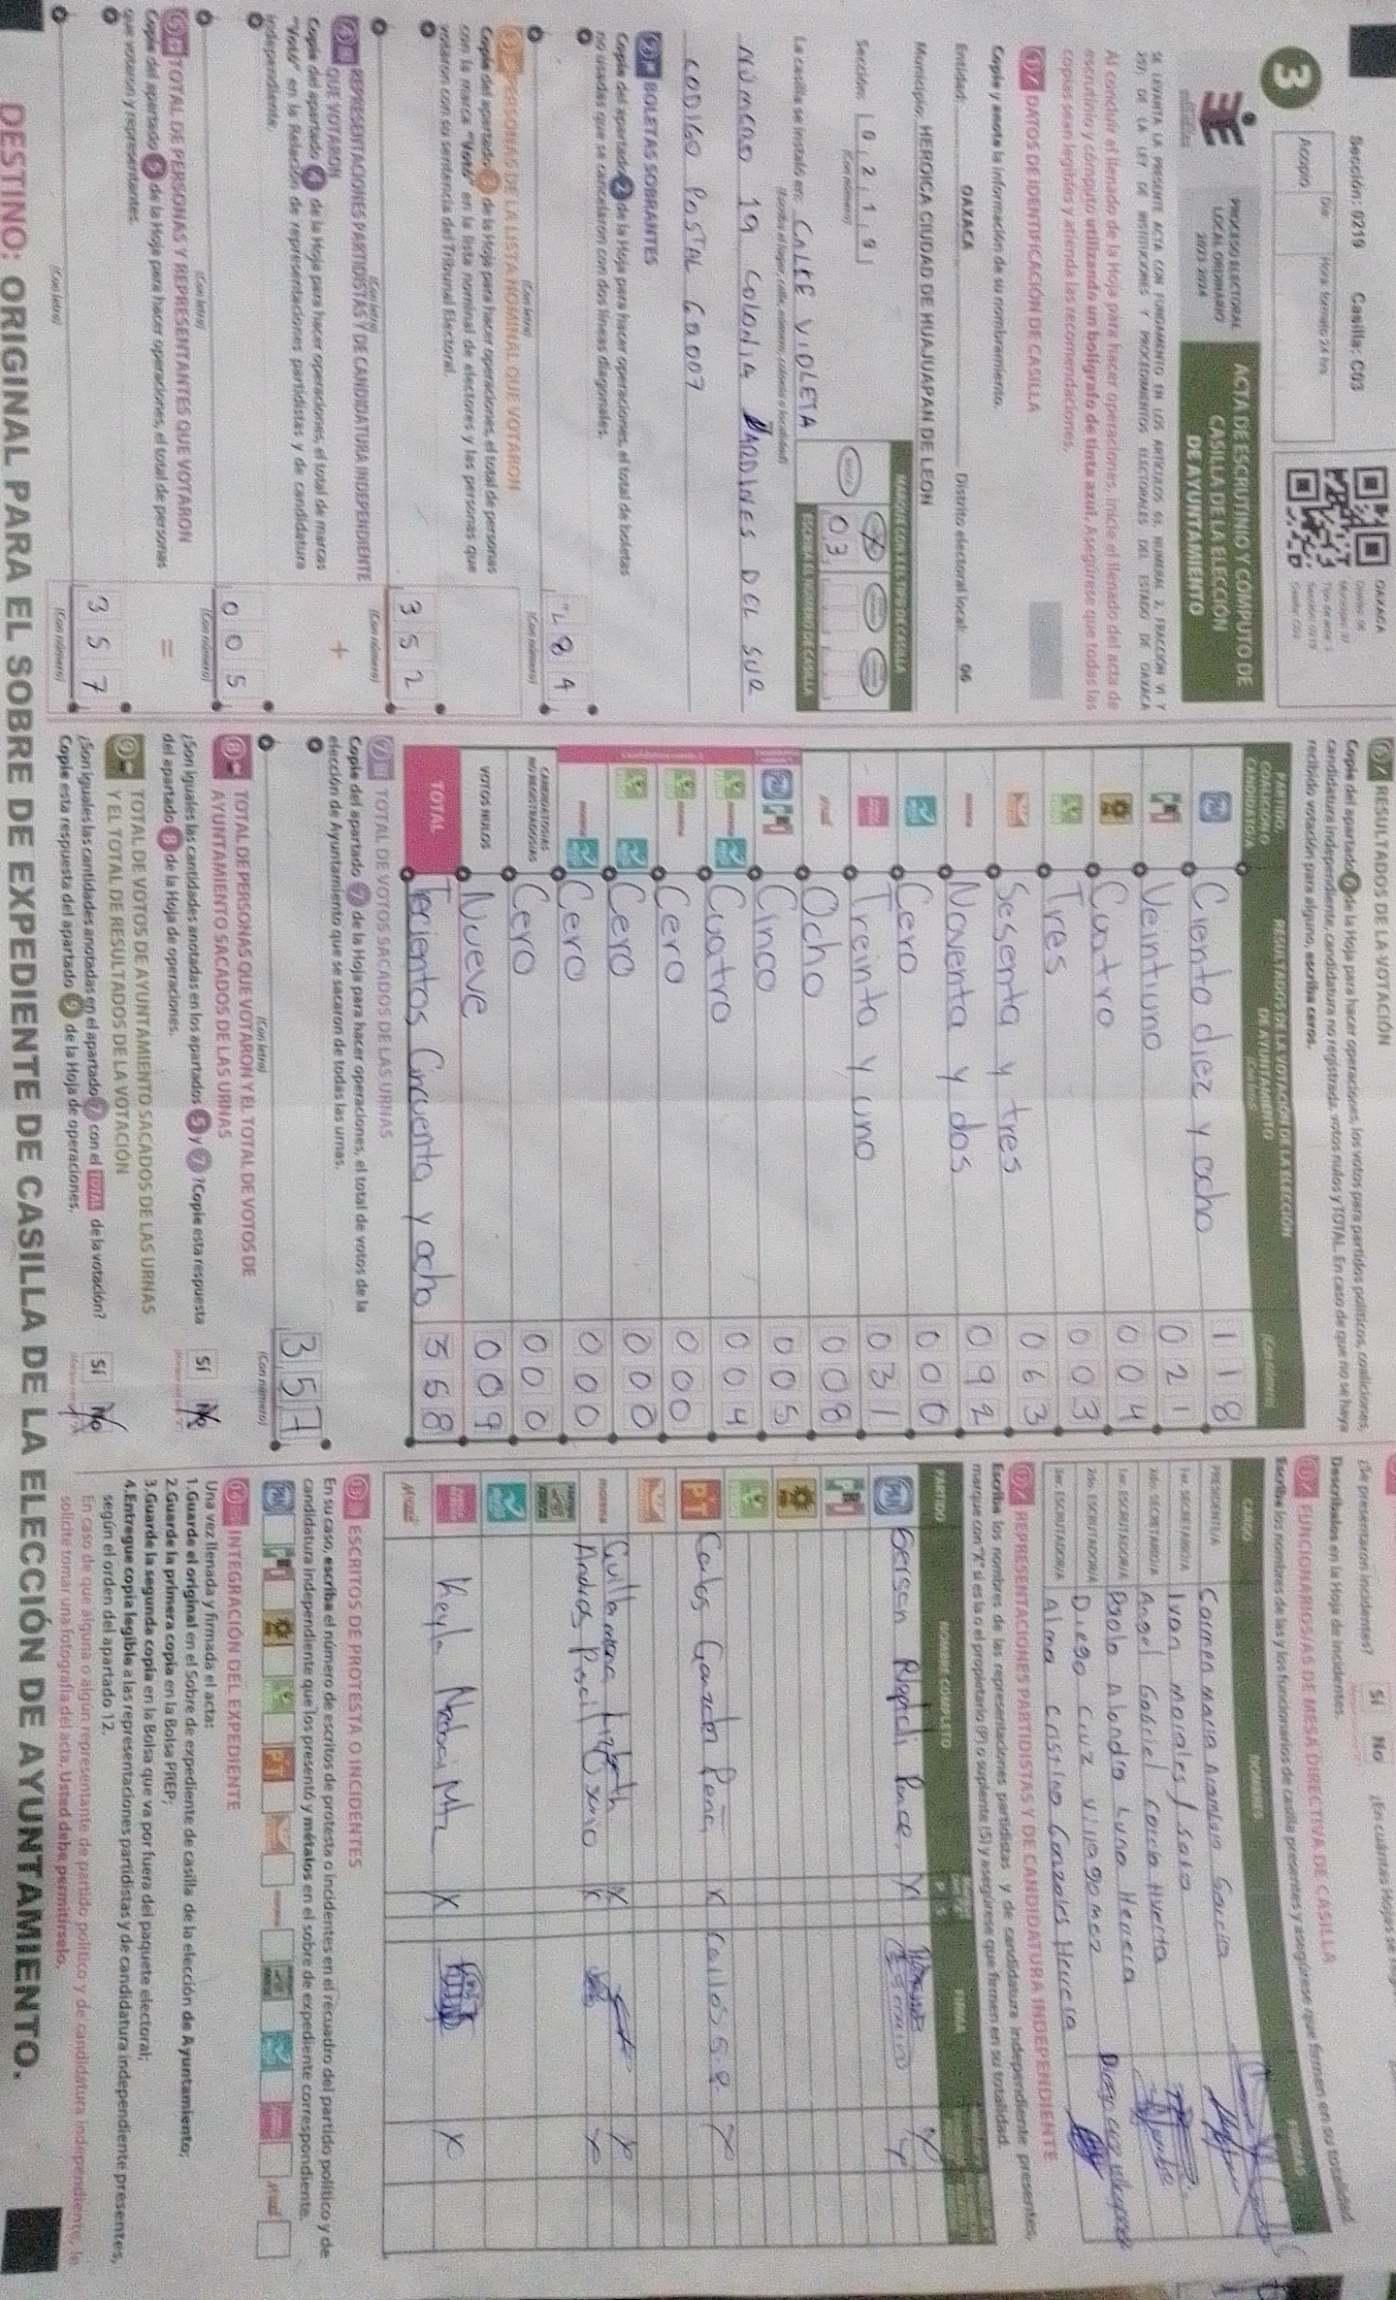 Sección: 0219 Casilla: C03
OAXACA
3
Acopio
Día
Hora: formato 24 hrs
PROCESO ELECTORAL
LOCAL ORDINARIO
2023-2024
ACTA DE ESCRUTINIO Y CÓMPUTO DE
CASILLA DE LA ELECCIÓN
DE AYUNTAMIENTO
SE LEVANTA LA PRESENTE ACTA CON FUNDAMENTO EN LOS ARTÍCULOS
DE LA LEY DE INSTITUCIONES Y PROCEDIMIENTOS ELECTORALES DEL ESTADO DE OAXACA
Al concluir el llenado de la Hoja para hacer operaciones, inicie el llenado del acta de
escrutinio y cómputo utilizando un bolígrafo de tinta azul. Asegúrese que todas las
copias sean legibles y atienda las recomendaciones.
1 DATOS DE IDENTIFICACIÓN DE CASILLA
Copie y anote la información de su nombramiento.
Entidad: OAXACA Distrito electoral local: 06
Municipio: HEROICA CIUDAD DE HUAJUAPAN DE LEON
Sección: 0 2 1 9
(Con número)
MARQUE CON X EL TIPO DE CASILLA
ESCRIBA EL NÚMERO DE CASILLA
03
La casilla se instaló en: CALLE VIOLETA
(Escriba el lugar, calle, número, colonia o localidad)
NÚMERO 19 COLONIA JARDINES DEL SUR
CODIGO POSTAL 69007
2 BOLETAS SOBRANTES
Copie del apartado 2 de la Hoja para hacer operaciones, el total de boletas
no usadas que se cancelaron con dos líneas diagonales.
(Con letra)
(Con número)
3 PERSONAS DE LA LISTA NOMINAL QUE VOTARON
Copie del apartado 3 de la Hoja para hacer operaciones, el total de personas
con la marca "Votó" en la lista nominal de electores y las personas que
votaron con su sentencia del Tribunal Electoral.
3 5 2
(Con letra)
(Con número)
4 REPRESENTACIONES PARTIDISTAS Y DE CANDIDATURA INDEPENDIENTE
QUE VOTARON
+
Copie del apartado 4 de la Hoja para hacer operaciones, el total de marcas
"Votó" en la Relación de representaciones partidistas y de candidatura
independiente.
0 0 5
(Con letra)
(Con número)
5 TOTAL DE PERSONAS Y REPRESENTANTES QUE VOTARON
=
Copie del apartado 5 de la Hoja para hacer operaciones, el total de personas
que votaron y representantes.
3 5 7
(Con letra)
(Con número)
6 RESULTADOS DE LA VOTACIÓN
Copie del apartado 6 de la Hoja para hacer operaciones, los votos para partidos políticos, coaliciones,
candidatura independiente, candidatura no registrada, votos nulos y TOTAL. En caso de que no se haya
recibido votación para alguno, escriba ceros.
PARTIDO,
COALICIÓN O
CANDIDATO/A
RESULTADOS DE LA VOTACIÓN DE LA ELECCIÓN
DE AYUNTAMIENTO
(Con letra)
(Con número)
PAN Ciento diez y ocho 1 1 8
Veintiuno 0 2 1
Cuatro 0 0 4
Tres 0 0 3
Sesenta y tres 0 6 3
morena Noventa y dos 0 9 2
Cero 0 0 0
Treinta y uno 0 3 1
Ocho 0 0 8
Cinco 0 0 5
Cuatro 0 0 4
Cero 0 0 0
Cero 0 0 0
Cero 0 0 0
CANDIDATOS/AS
NO REGISTRADOS/AS Cero 0 0 0
VOTOS NULOS Nueve 0 0 9
TOTAL Tecientos Cincuenta y ocho 3 5 8
7 TOTAL DE VOTOS SACADOS DE LAS URNAS
Copie del apartado 7 de la Hoja para hacer operaciones, el total de votos de la
elección de Ayuntamiento que se sacaron de todas las urnas.
3 5 7
(Con letra)
(Con número)
8 TOTAL DE PERSONAS QUE VOTARON Y EL TOTAL DE VOTOS DE
AYUNTAMIENTO SACADOS DE LAS URNAS
¿Son iguales las cantidades anotadas en los apartados 5 y 7? Copie esta respuesta
del apartado 8 de la Hoja de operaciones.
Sí No
9 TOTAL DE VOTOS DE AYUNTAMIENTO SACADOS DE LAS URNAS
Y EL TOTAL DE RESULTADOS DE LA VOTACIÓN
¿Son iguales las cantidades anotadas en el apartado 7 con el TOTAL de la votación?
Copie esta respuesta del apartado 9 de la Hoja de operaciones.
Sí No
¿Se presentaron incidentes? Sí No
Descríbalos en la Hoja de incidentes.
FUNCIONARIOS/AS DE MESA DIRECTIVA DE CASILLA
Escriba los nombres de las y los funcionarios de casilla presentes y asegúrese que firmen en su totalidad.
CARGO NOMBRES FIRMAS
PRESIDENTE/A Carmen Maria Aramburo Garcia
1er. SECRETARIO/A Ivan morales Soto
2do. SECRETARIO/A Angel Gabriel Garcia Huerta
1er. ESCRUTADOR/A Paola Alondra Luna Herrera
2do. ESCRUTADOR/A Diego Cruz Villagomez
3er. ESCRUTADOR/A Alma Cristina Gonzales Herrera
REPRESENTACIONES PARTIDISTAS Y DE CANDIDATURA INDEPENDIENTE
Escriba los nombres de las representaciones partidistas y de candidatura independiente presentes,
marque con "X" si es la o el propietario (P) o suplente (S) y asegúrese que firmen en su totalidad.
PARTIDO NOMBRE COMPLETO P S FIRMA
PAN Gerson X
PT Carlos Gonzalez Peña X Carlos G.P.
morena
X
Keyla X
13 ESCRITOS DE PROTESTA O INCIDENTES
En su caso, escriba el número de escritos de protesta o incidentes en el recuadro del partido político y de
candidatura independiente que los presentó y métalos en el sobre de expediente correspondiente.
INTEGRACIÓN DEL EXPEDIENTE
Una vez llenada y firmada el acta:
1.Guarde el original en el Sobre de expediente de casilla de la elección de Ayuntamiento;
2.Guarde la primera copia en la Bolsa PREP;
3.Guarde la segunda copia en la Bolsa que va por fuera del paquete electoral;
4.Entregue copia legible a las representaciones partidistas y de candidatura independiente presentes,
según el orden del apartado 12.
En caso de que alguna o algún representante de partido político y de candidatura independiente, le
solicite tomar una fotografía del acta, Usted debe permitírselo.
DESTINO: ORIGINAL PARA EL SOBRE DE EXPEDIENTE DE CASILLA DE LA ELECCIÓN DE AYUNTAMIENTO.